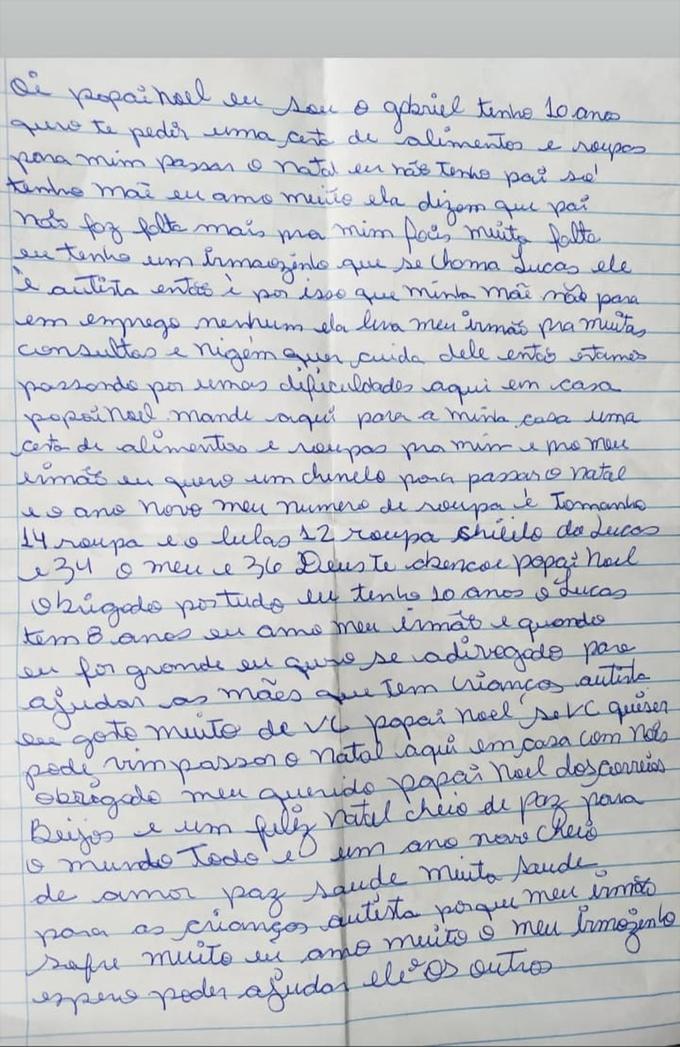 Oi popai Noel eu sou o gabriel tenho 10 anos
quro te pedir uma ceta de alimentos e roupas
para mim passar o natal eu não tenho pai só
tenho mãe eu amo muito ela dizem que pai
não faz falta mais pra mim fais muita falta
eu tenho um irmãozinho que se choma Lucas ele
è autista então è por isso que minha mãe não para
em emprego nenhum ela leva meu irmão pra muitas
consultas e nigém quer cuida dele então estamos
passando por umas dificuldades aqui em casa
popai Noel mande aqui para a minha casa uma
ceta de alimentos e roupas pra mim e pro meu
irmão eu quero um chinelo para passar o natal
e o ano novo meu numero de roupa è Tomanho
14 roupa e o lulas 12 roupa do Lucas
e 34 o meu e 36 Deus te abencoe popai Noel
Obrigado por tudo eu tenho 10 anos o Lucas
tem 8 anos eu amo meu irmão e quando
eu for grande eu quro se adivogado para
ajudar as mães que tem crianços autista
eu goto muito de vc popai noel se vc quiser
pode vim passar o natal aqui em casa com nois
obrigado meu querido popai Noel dos correios
Beijos e um feliz natal cheio de paz para
o mundo Todo e um ano novo cheio
de amor paz saude muita saude
para as crianços autista porque meu irmão
sofre muito eu amo muito o meu Irmozinho
espero poder ajudar ele e os outros